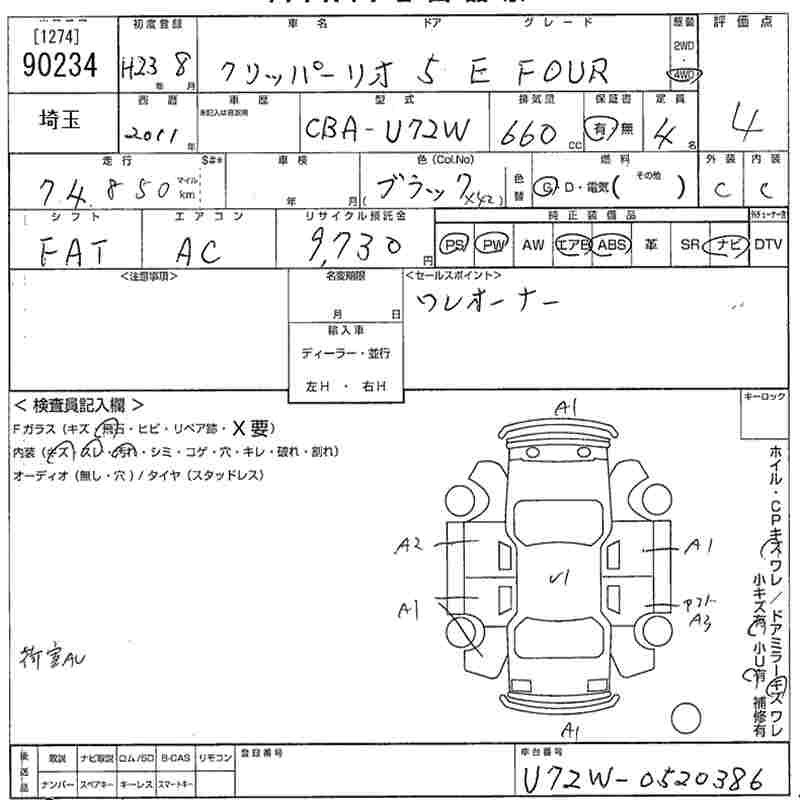 [1274]
90234
初度登録 車名 ドア グレード 駆動 評価点
H23年 8月 クリッパーリオ 5 E FOUR 2WD 4WD 4
埼玉
西暦 車歴 型式 排気量 保証書 定員
2011年 未記入は自家用 CBA-U72W 660cc 有・無 4名
走行 $#* 車検 色(Col.No) 燃料 外装 内装
74,850 マイル km 年 月 (ブラック X42) 色替 G・D・電気( その他 ) C C
シフト エアコン リサイクル預託金 純正装備品
FAT AC 9,730円 PS PW AW エアB ABS 革 SR ナビ DTV
<注意事項> 名変期限 <セールスポイント>
月 日 ワンオーナー
輸入車
ディーラー・並行
左H ・ 右H
< 検査員記入欄 > キーロック
Fガラス(キズ・飛石・ヒビ・リペア跡・X要)
内装(キズ・スレ・汚れ・シミ・コゲ・穴・キレ・破れ・割れ)
オーディオ(無し・穴)/タイヤ(スタッドレス)
A1
A2 A1
U1
A1 A3
A1
荷室AU
ホイル・CPキズワレ/ドアミラーキズワレ
小キズ有 小U有 補修有
後送品 取説 ナビ取説 ロム/SD B-CAS リモコン 登録番号 車台番号
ナンバー スペアキー キーレス スマートキー U72W-0520386